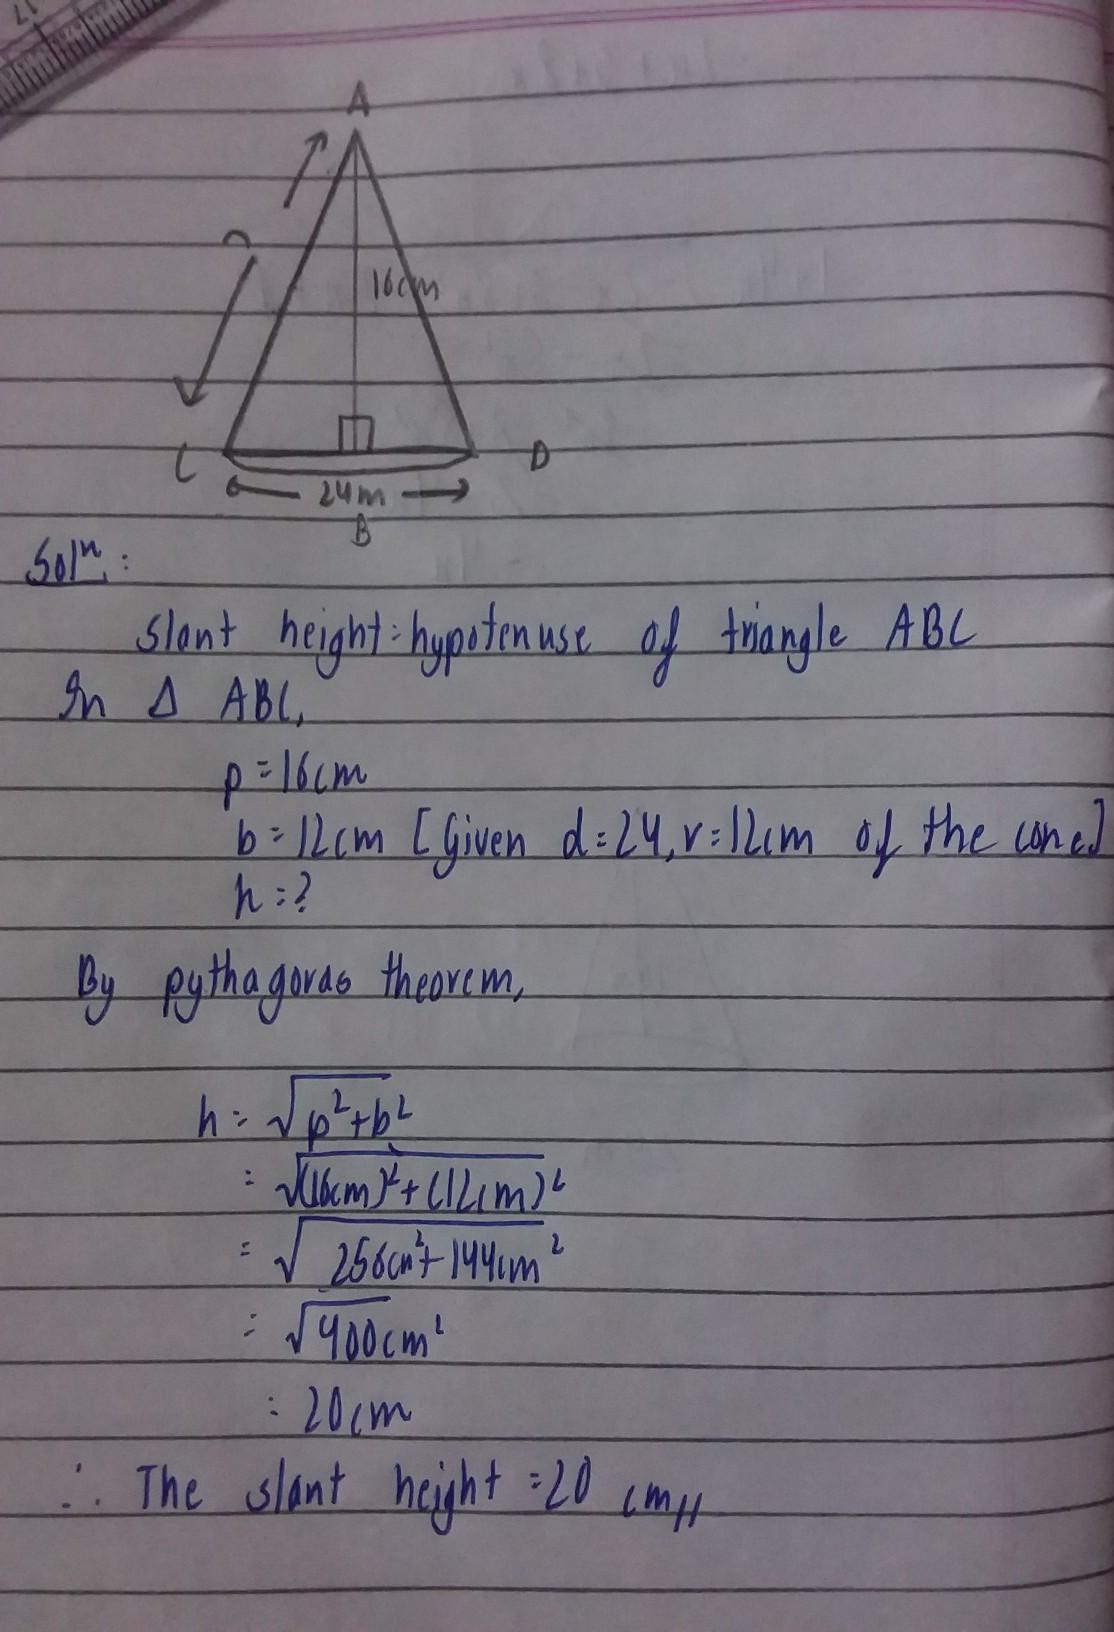 A
16cm
C
D
24m
B
Solⁿ:
Slant height = hypotenuse of triangle ABC
In Δ ABC,
p = 16cm
b = 12cm [Given d = 24, r = 12cm of the cone]
h = ?
By pythagoras theorem,
h = √p²+b²
= √(16cm)²+(12cm)²
= √256cm²+144cm²
= √400cm²
= 20cm
∴ The slant height = 20 cm//